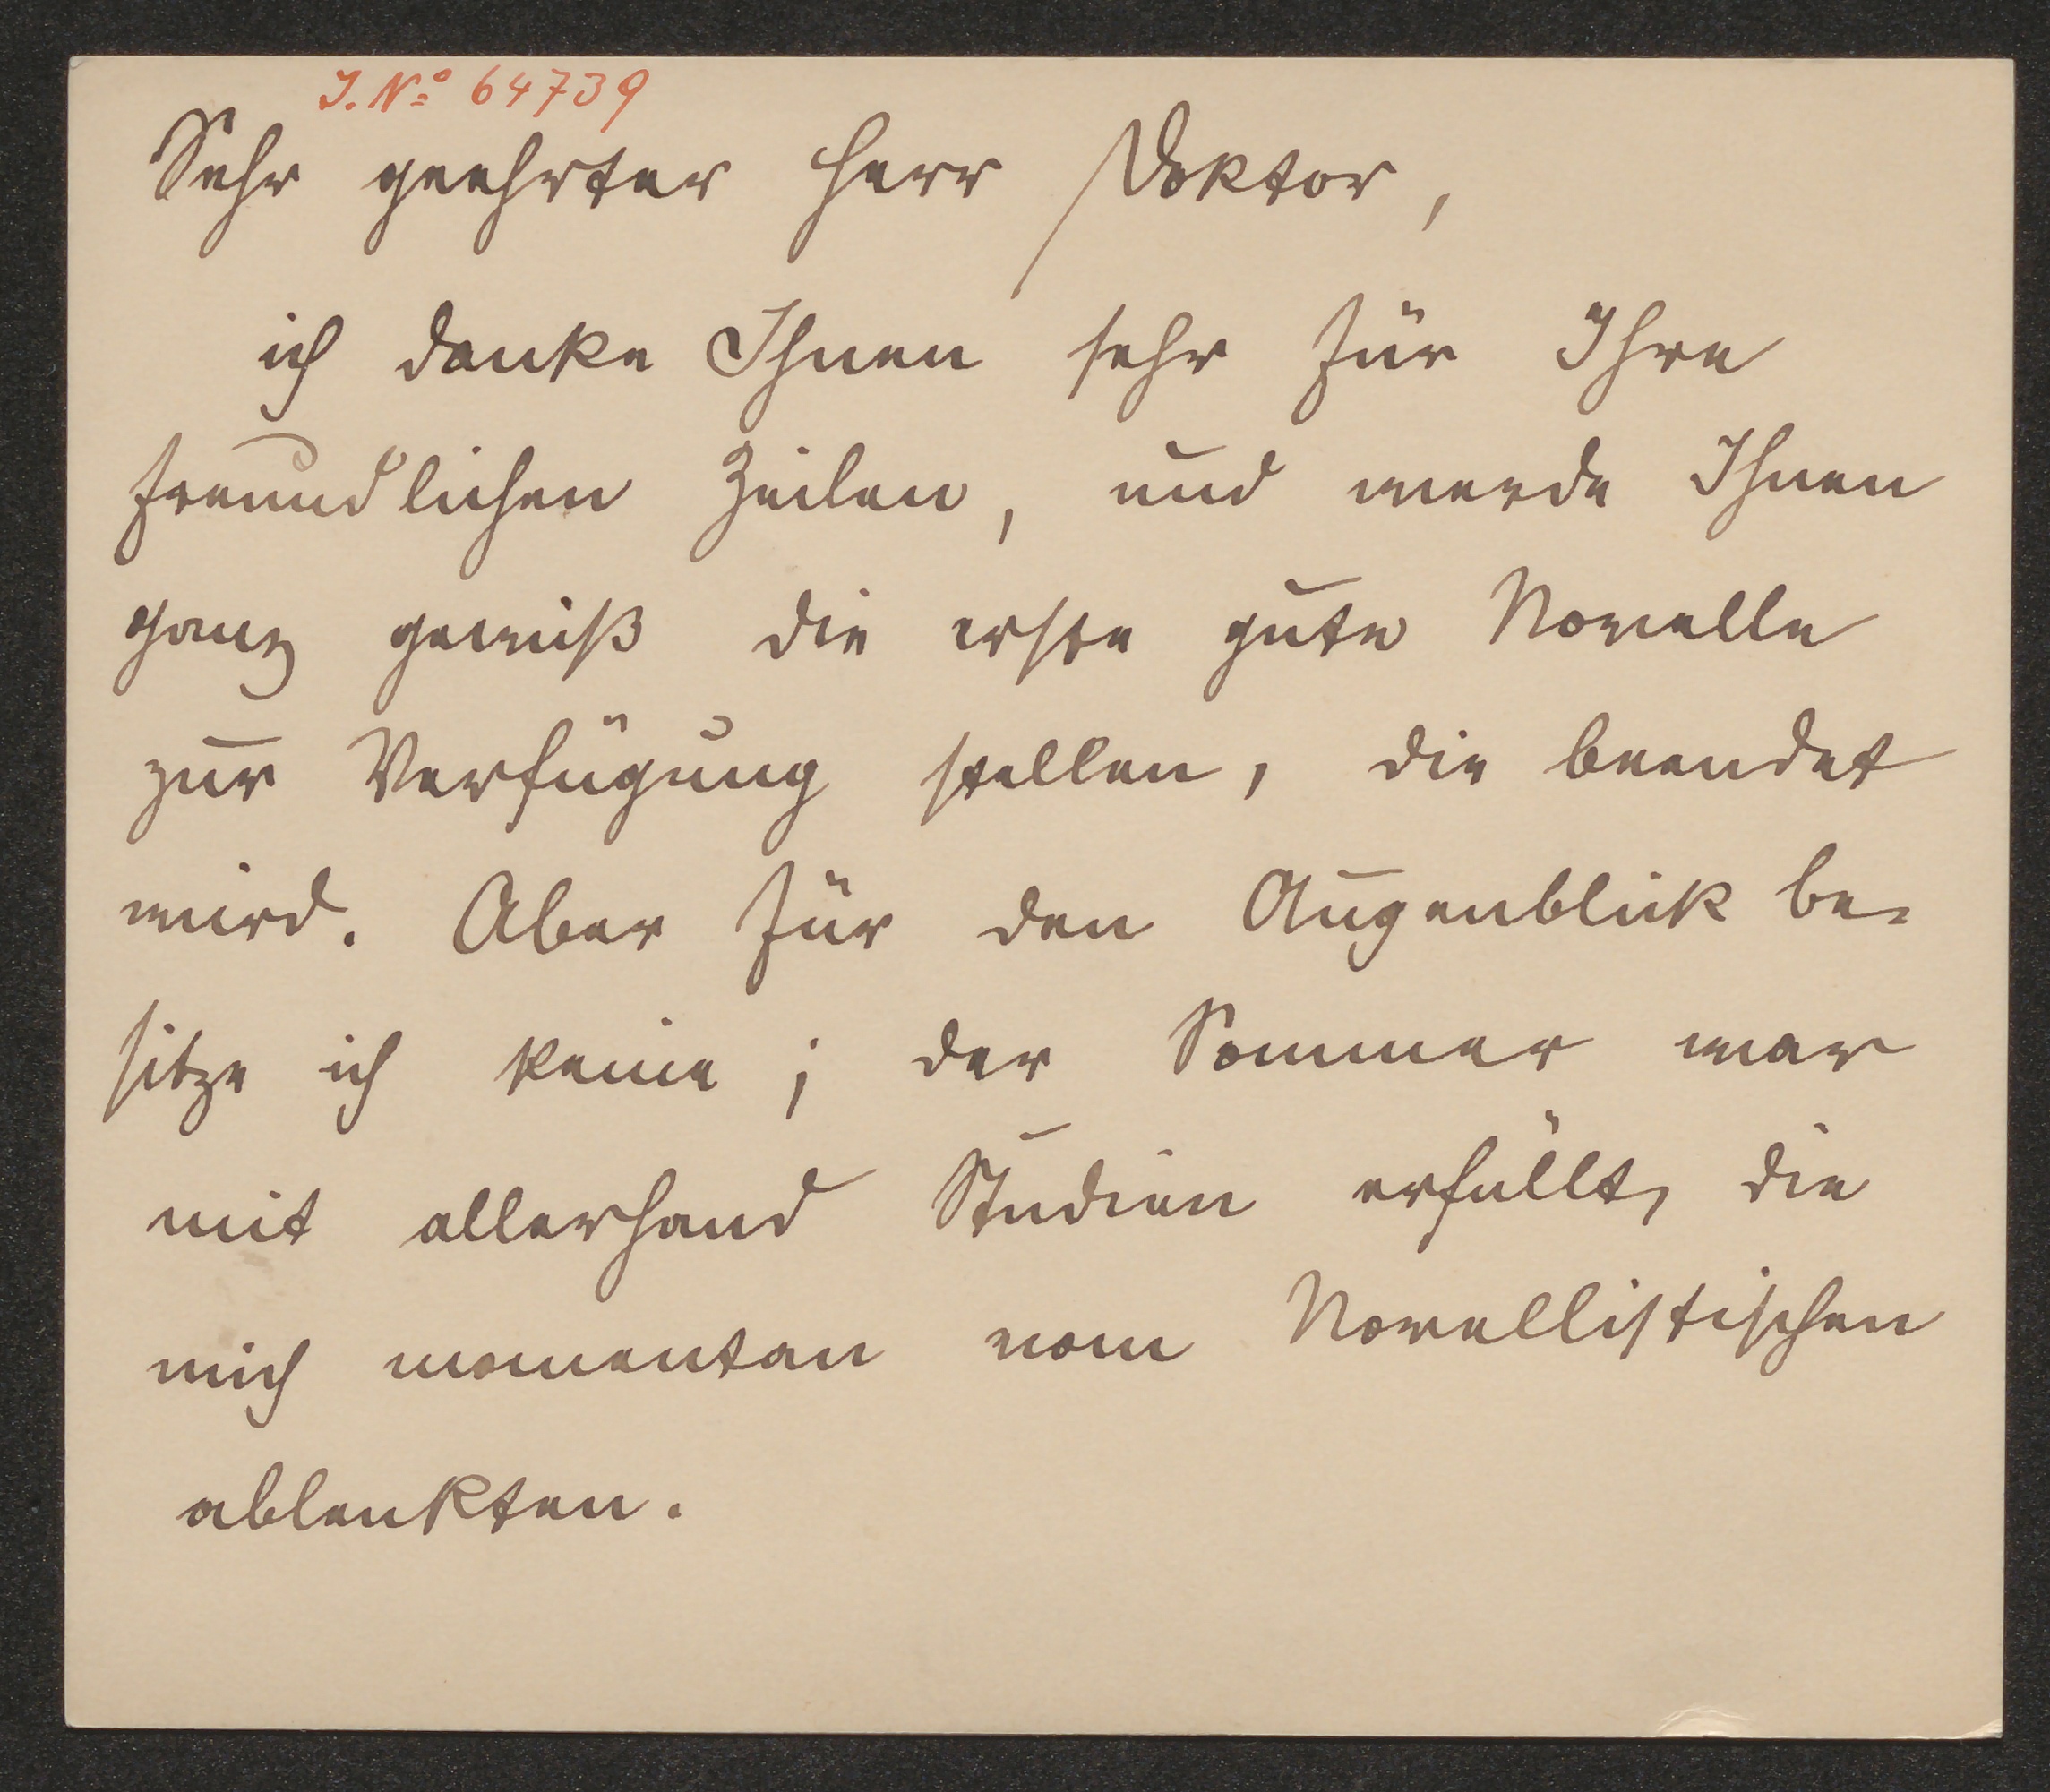 J. Nº 64739
Sehr geehrter Herr Doktor,
ich danke Ihnen sehr für Ihre
freundlichen Zeilen, und werde Ihnen
ganz gewiß die erste gute Novelle
zur Verfügung stellen, die beendet
wird. Aber für den Augenblick be-
sitze ich keine; der Sommer war
mit allerhand Studien erfüllt, die
mich momentan vom Novellistischen
ablenkten.